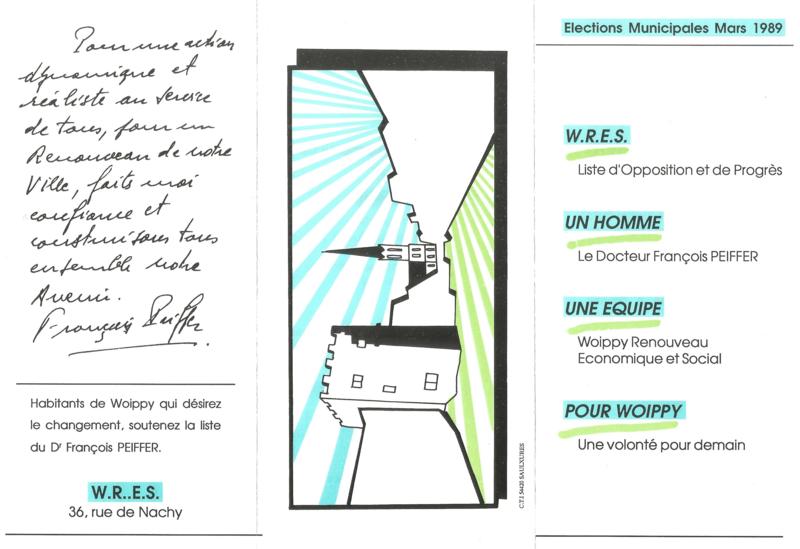 Pour une action
dynamique et
réaliste au service
de tous, pour un
Renouveau de notre
Ville, faits moi
confiance et
construisons tous
ensemble notre
Avenir.
François Peiffer.
Habitants de Woippy qui désirez
le changement, soutenez la liste
du Dr François PEIFFER.
W.R..E.S.
36, rue de Nachy
C.T.I 54420 SAULXURES
Elections Municipales Mars 1989
W.R.E.S.
Liste d'Opposition et de Progrès
UN HOMME
Le Docteur François PEIFFER
UNE EQUIPE
Woippy Renouveau
Economique et Social
POUR WOIPPY
Une volonté pour demain